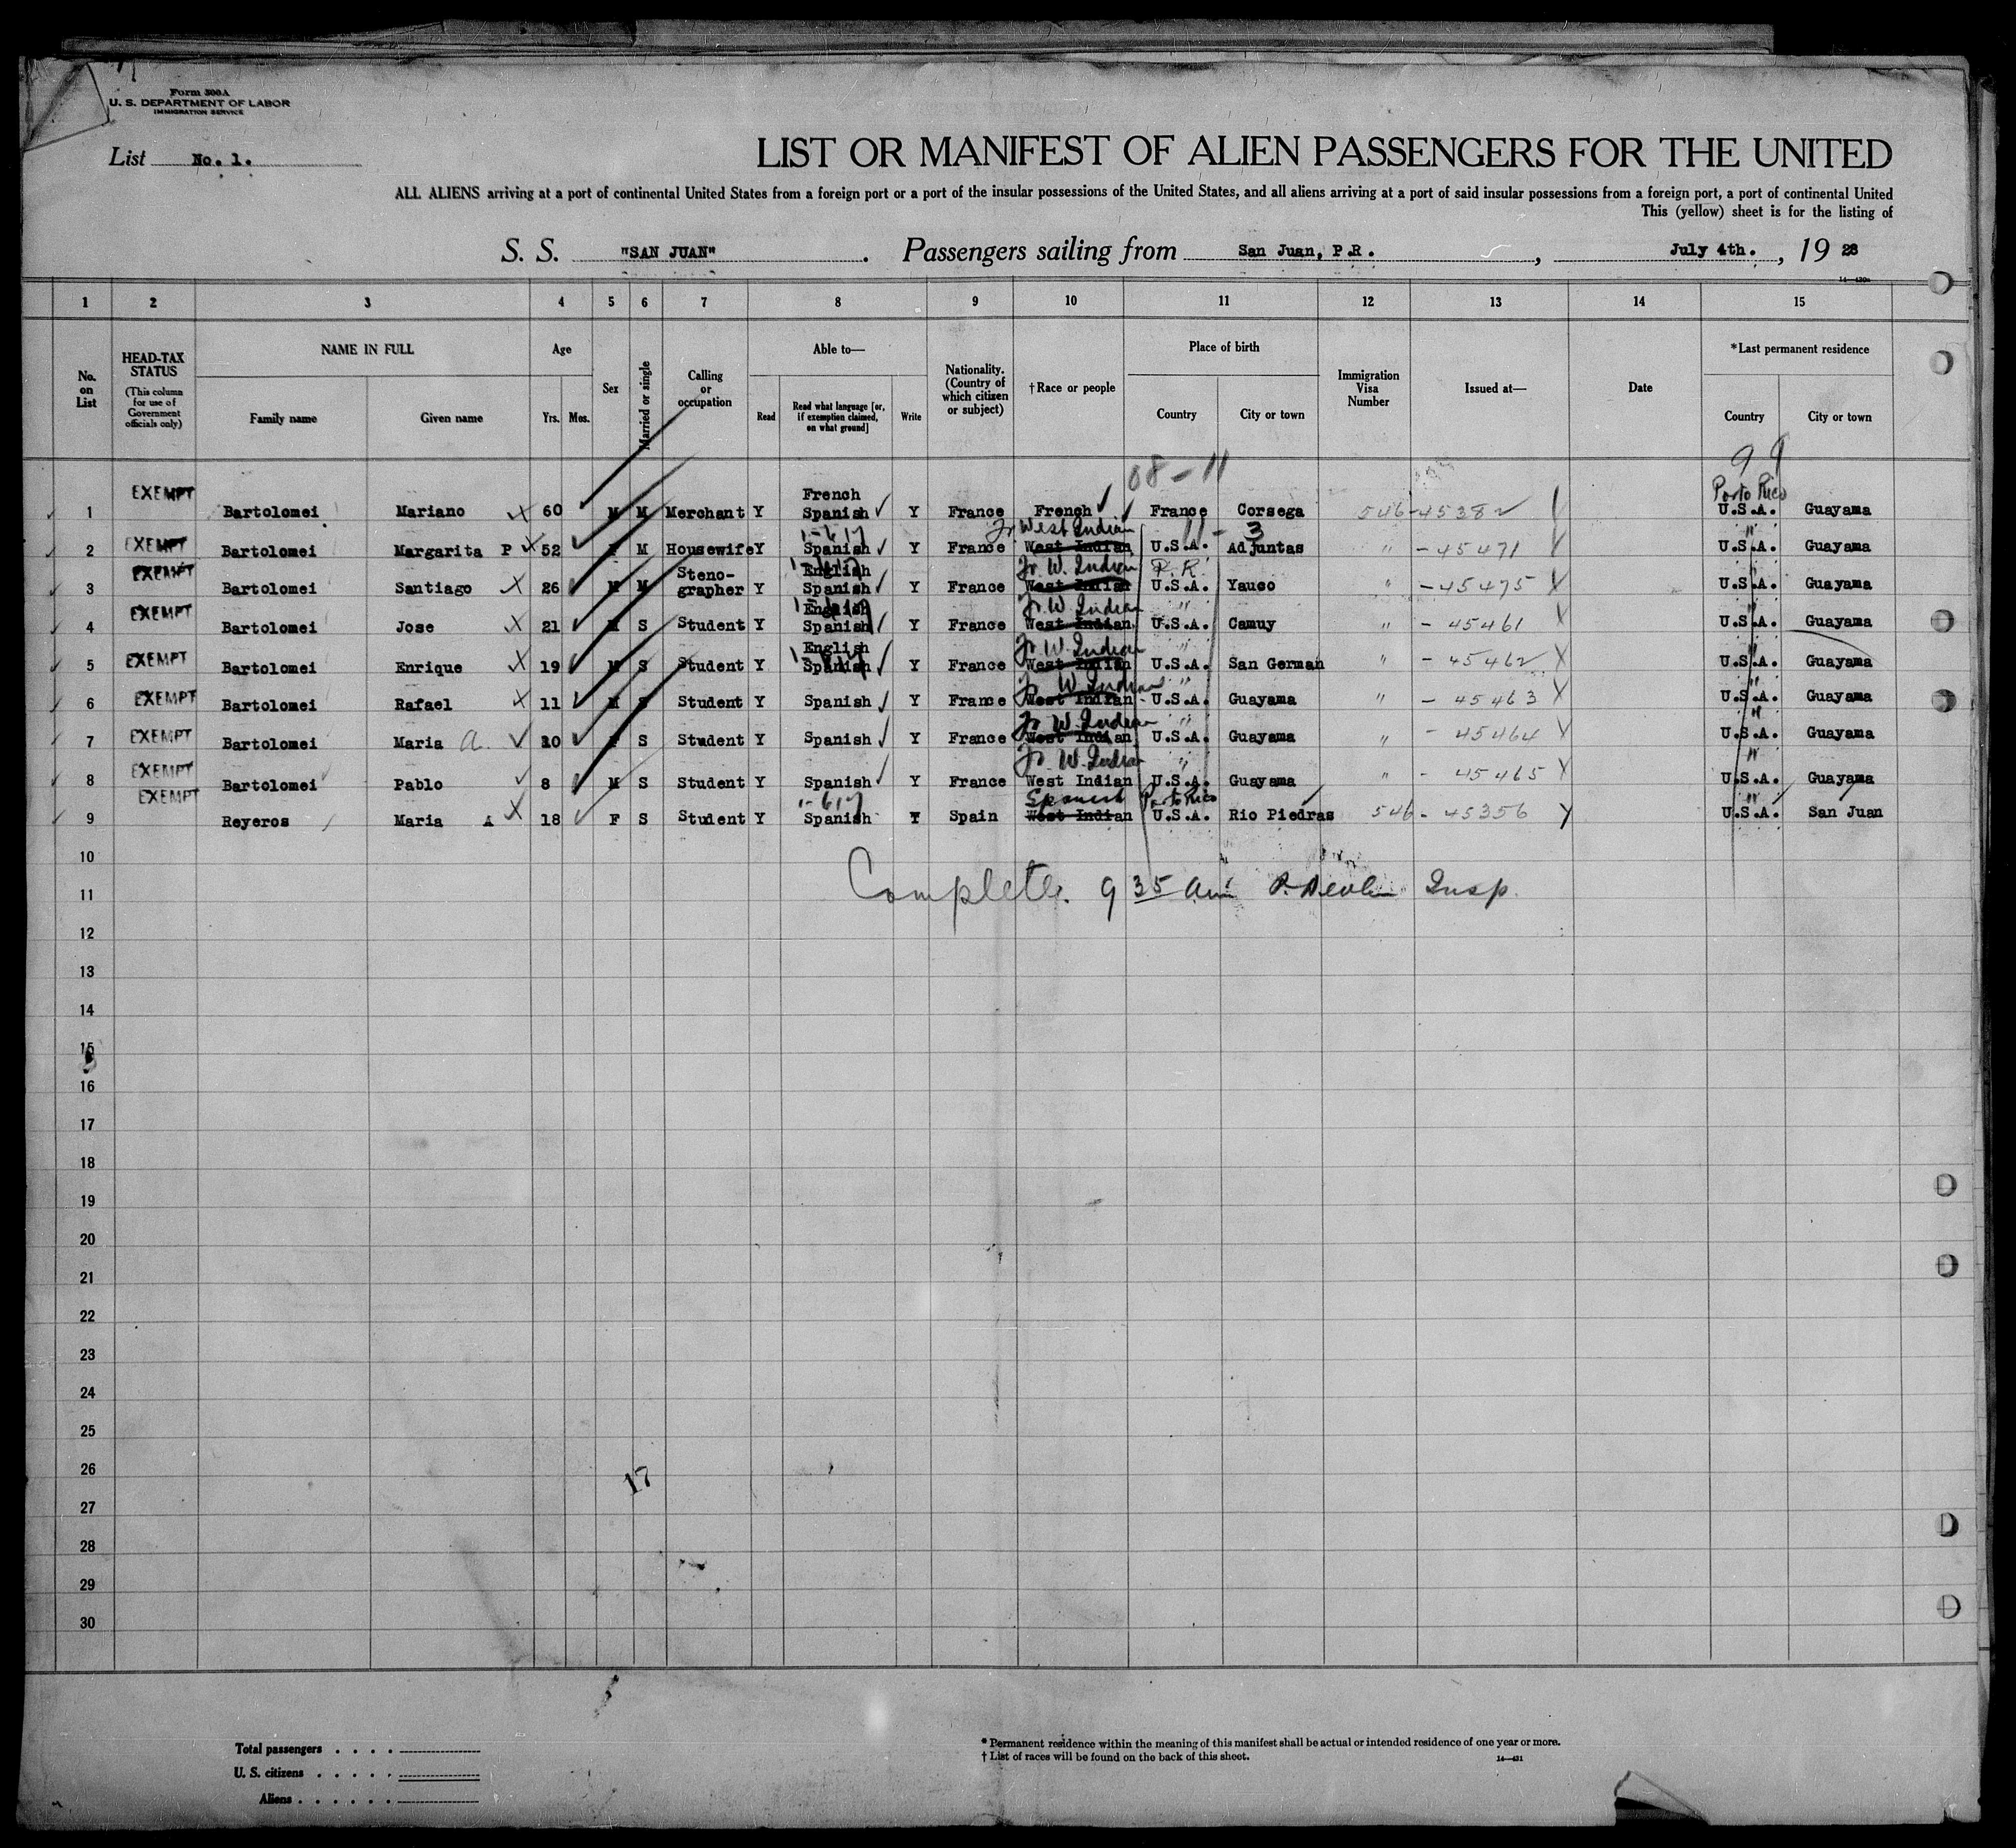 Form 500A
U. S. DEPARTMENT OF LABOR
IMMIGRATION SERVICE
List No. 1.
LIST OR MANIFEST OF ALIEN PASSENGERS FOR THE UNITED
ALL ALIENS arriving at a port of continental United States from a foreign port or a port of the insular possessions of the United States, and all aliens arriving at a port of said insular possessions from a foreign port, a port of continental United
This (yellow) sheet is for the listing of
S. S. "SAN JUAN" . Passengers sailing from San Juan, P.R. , July 4th. , 19 28
1 2 3 4 5 6 7 8 9 10 11 12 13 14 15
No. on List
HEAD-TAX STATUS (This column for use of Government officials only)
NAME IN FULL
Family name Given name
Age
Yrs. Mos.
Sex
Married or single
Calling or occupation
Able to—
Read Read what language [or, if exemption claimed, on what ground] Write
Nationality. (Country of which citizen or subject)
† Race or people
Place of birth
Country City or town
Immigration Visa Number
Issued at—
Date
*Last permanent residence
Country City or town
08-11
99
1 EXEMPT Bartolomei Mariano 60 M M Merchant Y French Spanish Y France French France Corsega 546-45382 Porto Rico U.S.A. Guayama
11-3
2 EXEMPT Bartolomei Margarita P 52 F M Housewife Y Spanish Y France West Indian Fr West Indian U.S.A. Adjuntas " -45471 " U.S.A. Guayama
3 EXEMPT Bartolomei Santiago 26 M M Stenographer Y English Spanish Y France West Indian Fr. W. Indian P.R. U.S.A. Yauco " -45475 " U.S.A. Guayama
4 EXEMPT Bartolomei Jose 21 M S Student Y English Spanish Y France West Indian Fr. W. Indian " U.S.A. Camuy " - 45461 " U.S.A. Guayama
5 EXEMPT Bartolomei Enrique 19 M S Student Y English Spanish Y France West Indian Fr. W. Indian " U.S.A. San German " - 45462 " U.S.A. Guayama
6 EXEMPT Bartolomei Rafael 11 M S Student Y Spanish Y France West Indian Fr W. Indian " U.S.A. Guayama " - 45463 " U.S.A. Guayama
7 EXEMPT Bartolomei Maria A. 10 F S Student Y Spanish Y France West Indian Fr W. Indian " U.S.A. Guayama " - 45464 " U.S.A. Guayama
8 EXEMPT Bartolomei Pablo 8 M S Student Y Spanish Y France West Indian Fr. W. Indian " U.S.A. Guayama " - 45465 " U.S.A. Guayama
9 EXEMPT Reyeros Maria A 18 F S Student Y Spanish Y Spain West Indian Spanish Porto Rico U.S.A. Rio Piedras 546 - 45356 " U.S.A. San Juan
10
11 Complete. 9 35 am Insp.
12
13
14
15
16
17
18
19
20
21
22
23
24
25
26
17
27
28
29
30
Total passengers . . . .
U. S. citizens . . . . .
Aliens . . . . . .
* Permanent residence within the meaning of this manifest shall be actual or intended residence of one year or more.
† List of races will be found on the back of this sheet.
14—431